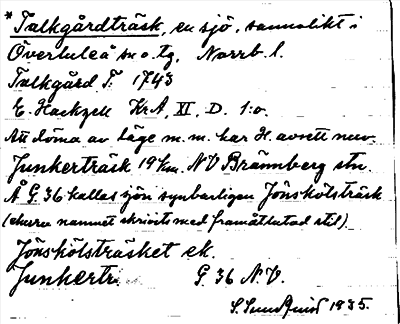 *Talkgårdträsk, en sjö, sannolikt i
Överluleå sn o. tg, Norrb. l.
Talkgård T. 1743
E. Hackzell KrA, XI, D. 1:o.
Att döma av läge m. m. har H. avsett nuv.
Junkerträsk 19 km. NV Brännberg stn.
Å G. 36 kallas sjön synbarligen Jönskölsträsk
(ehuru namnet skrivits med framåtlutad stil).
Jönskölsträsket ek.
Junkertr. G. 36 N.V.
S. Sundquist 1935.